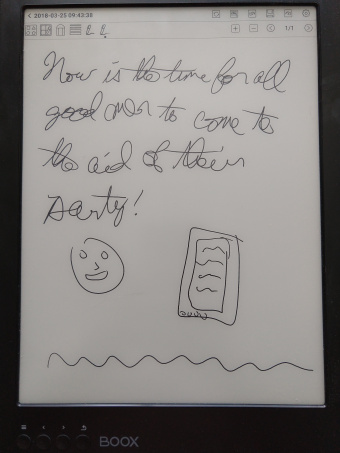 2018-03-25 09:43:38
1/1
Now is the time for all
good men to come to
the aid of their
party!
BOOX